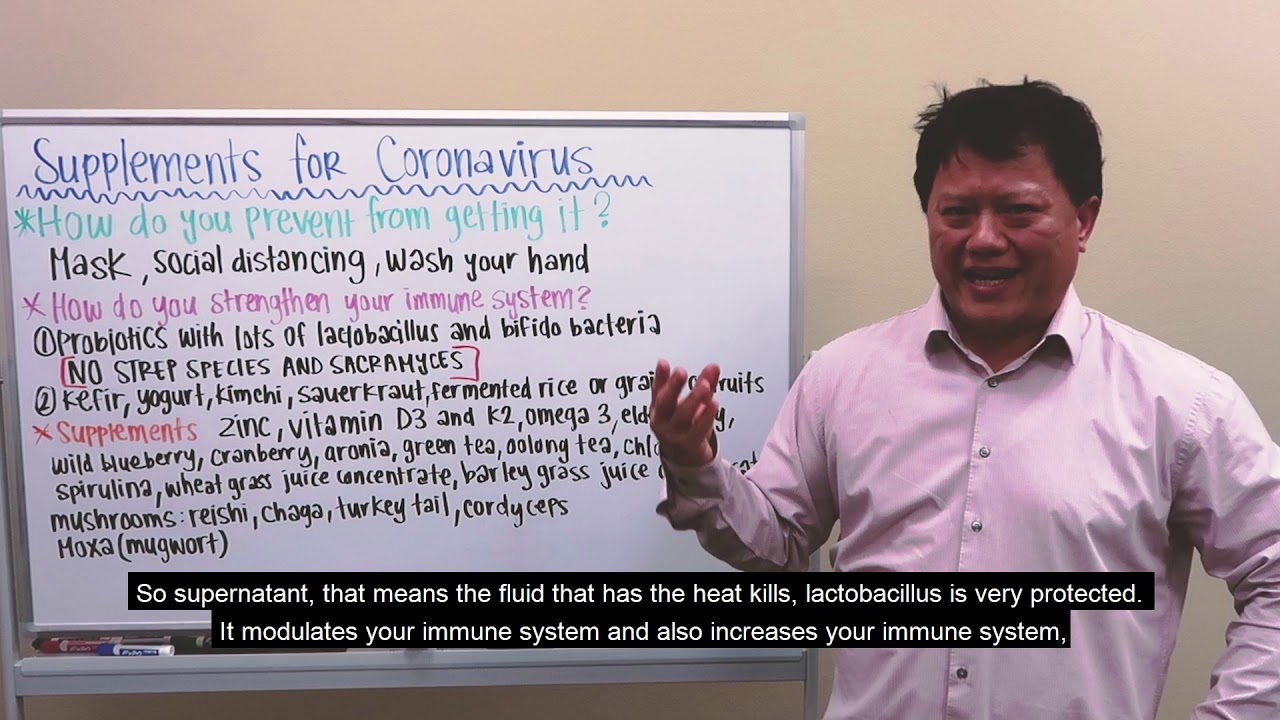 Supplements for Coronavirus
*How do you prevent from getting it?
Mask, social distancing, wash your hand
*How do you strengthen your immune system?
① Probiotics with lots of lactobacillus and bifido bacteria
NO STREP SPECIES AND SACRAMYCES
② Kefir, yogurt, kimchi, sauerkraut, fermented rice or
*Supplements zinc, vitamin D3 and K2, omega 3,
wild blueberry, cranberry, aronia, green tea, oolong tea,
spirulina, wheat grass juice concentrate, barley grass juice
mushrooms: reishi, chaga, turkey tail, cordyceps
Moxa (mugwort)
EXPO
So supernatant, that means the fluid that has the heat kills, lactobacillus is very protected.
It modulates your immune system and also increases your immune system,